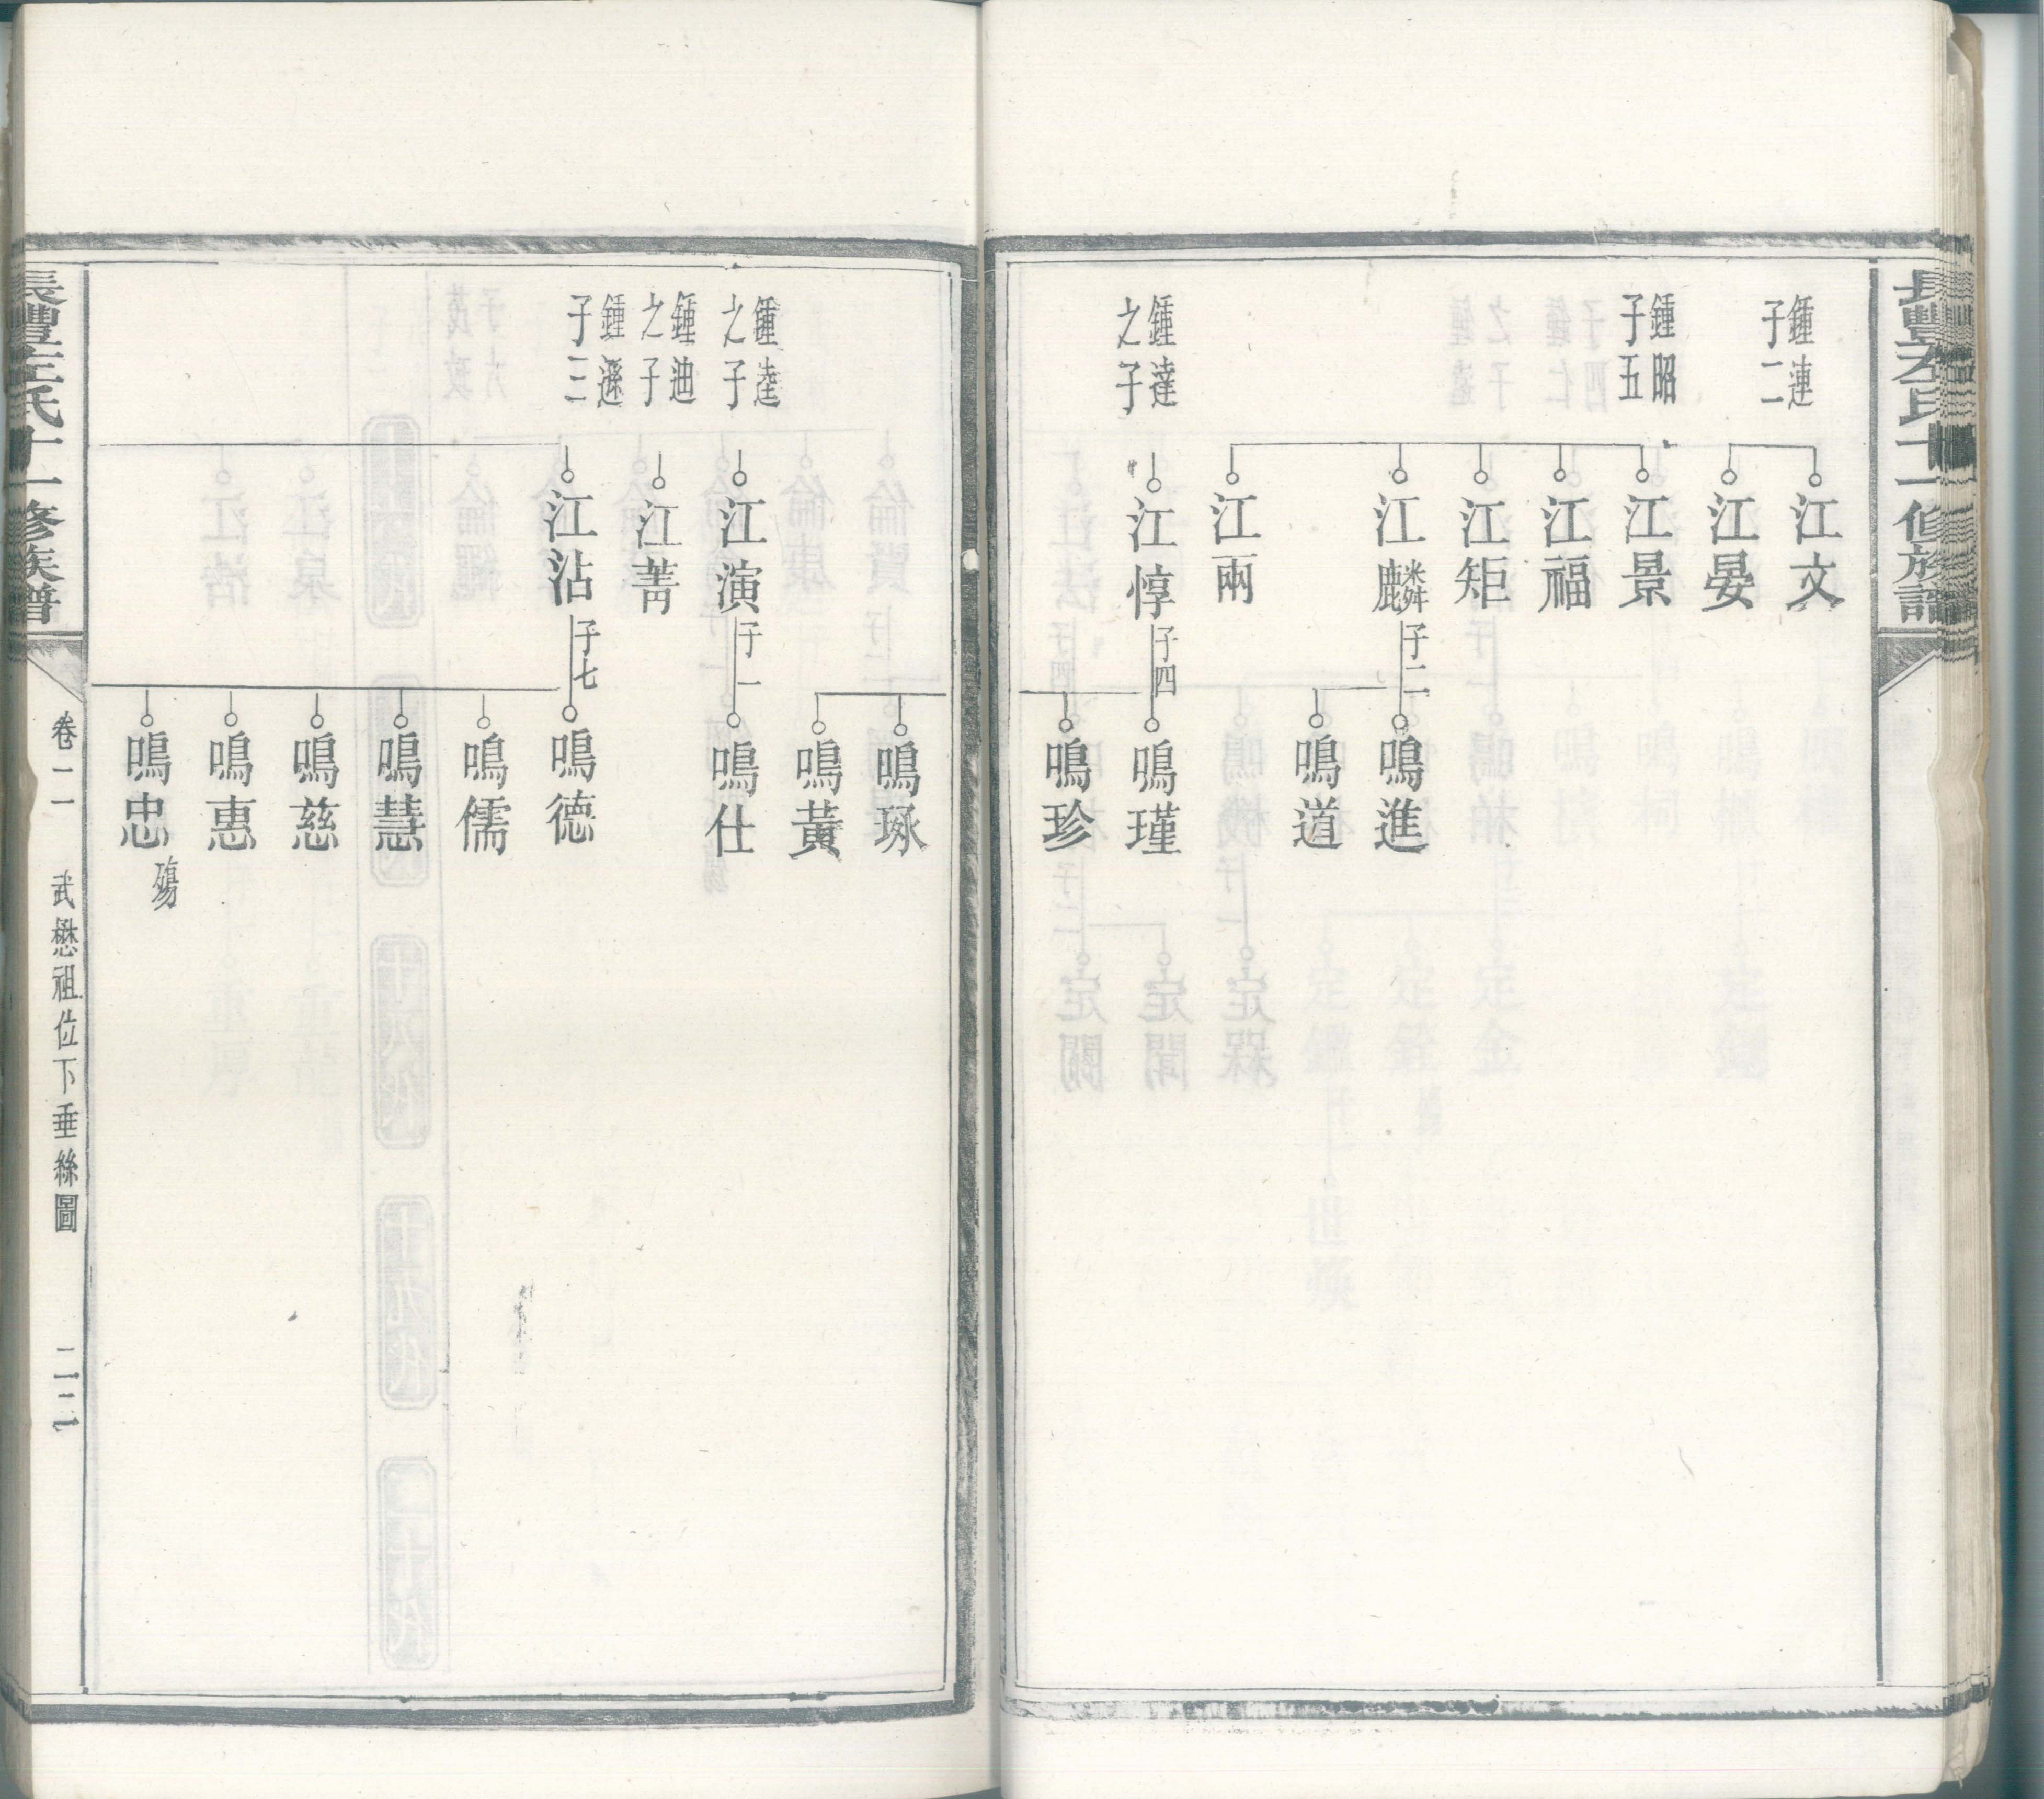 鍾連
子二
江文
江晏
鍾昭
子五
江景
江福
江矩
江麟
子二
鳴進
鳴道
江兩
鍾達
之子
江惇
子四
鳴瑾
鳴珍
鳴琢
鳴黃
鍾逵
之子
江演
子一
鳴仕
鍾迪
之子
江菁
鍾遜
子三
江沾
子七
鳴德
鳴儒
鳴慧
鳴慈
鳴惠
鳴忠
殤
十一修族譜
卷二
武懋祖位下垂絲圖
二二